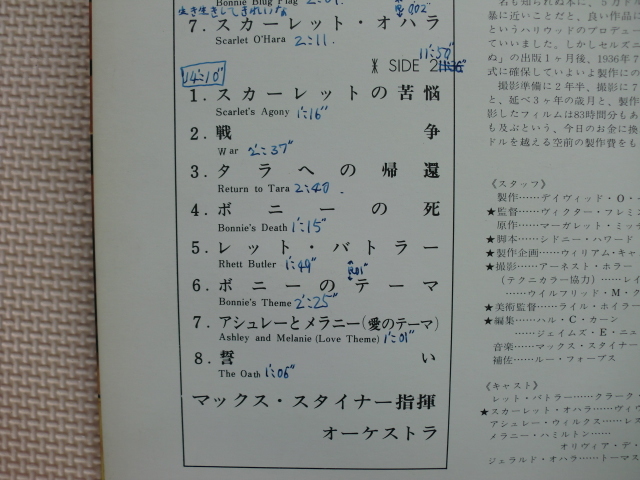 Bonnie Blug Flag 2:01"
生き生きしてきれいだな
7. スカーレット・オハラ
Scarlet O'Hara 2:11.
11'50"
SIDE 2
14:10"
1. スカーレットの苦悩
Scarlet's Agony 1':16"
2. 戦争
War 2':37"
3. タラへの帰還
Return to Tara 2:40.
4. ボニーの死
Bonnie's Death 1':15"
5. レット・バトラー
Rhett Butler 1':49"
6. ボニーのテーマ
Bonnie's Theme 2':25"
7. アシュレーとメラニー(愛のテーマ)
Ashley and Melanie (Love Theme) 1':01"
8. 誓い
The Oath 1':06"
マックス・スタイナー指揮
オーケストラ
名も知られぬ本に、5カド
暴に近いことだと、良い作品に
というハリウッドのプロデュー
ていいました。しかしセルズニ
ぬ」の出版1ヶ月後、1936年7
式に確保していよいよ製作にの
撮影準備に2年半、撮影に7
と、延べ3ヶ年の歳月と、製作
影したフィルムは83時間分もあ
も及ぶという、今日のお金に換
ドルを越える空前の製作費をも
《スタッフ》
製作……デイヴィッド・O・
★監督……ヴィクター・フレミ
原作……マーガレット・ミッチ
★脚本……シドニー・ハワード
★製作企画……ウィリアム・キャ
★撮影……アーネスト・ホラー
(テクニカラー協力)……レイ
……ウイルフリッド・M・ク
★美術監督……ライル・ホイラー
★編集……ハル・C・カーン
……ジェイムズ・E・ニュ
音楽……マックス・スタイナー
補佐……ルー・フォーブス
《キャスト》
レット・バトラー……クラーク・
★スカーレット・オハラ……ヴィ
アシュレー・ウィルクス……レス
メラニー・ハミルトン……
オリヴィア・デ・
ジェラルド・オハラ……トーマス